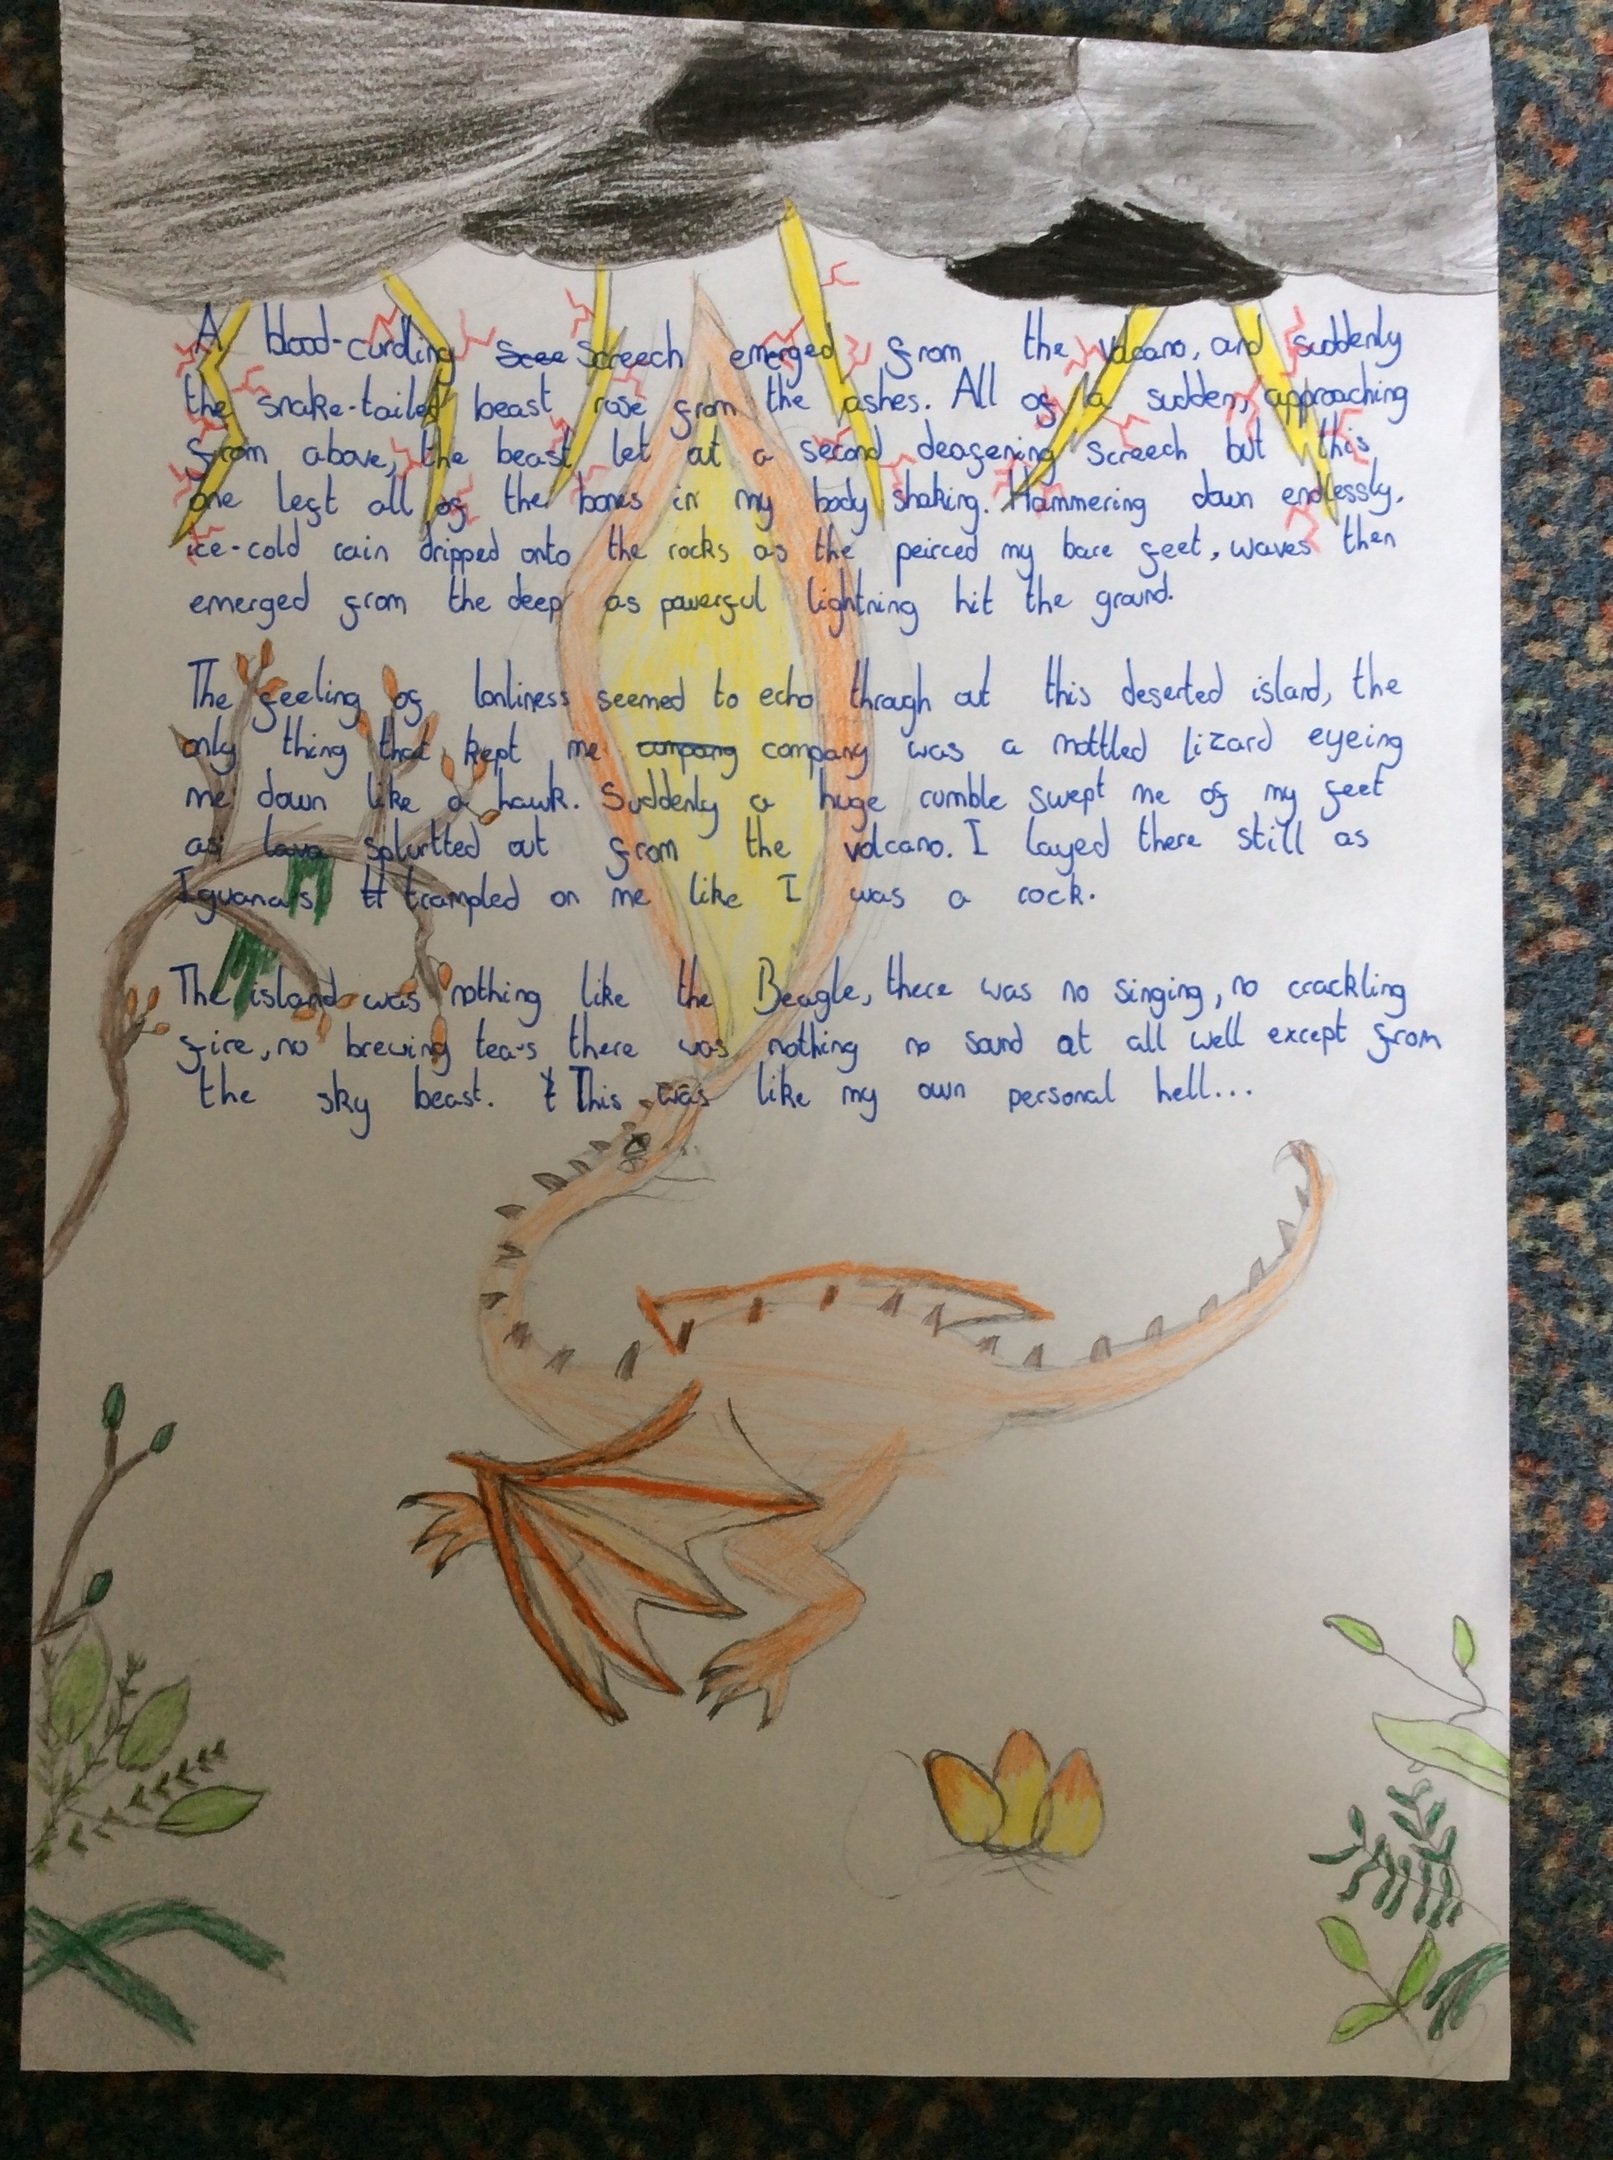 A blood-curdling screech emerged from the volcano, and suddenly
the snake-tailed beast rose from the ashes. All of a sudden, approaching
from above, the beast let out a second deafening screech but this
one left all of the bones in my body shaking. Hammering down endlessly,
ice-cold rain dripped onto the rocks as the peirced my bare feet, waves then
emerged from the deep as powerful lightning hit the ground.
The feeling of lonliness seemed to echo through out this deserted island, the
only thing that kept me company was a mottled lizard eyeing
me down like a hawk. Suddenly a huge rumble swept me of my feet
as lava splurtted out from the volcano. I layed there still as
Iguana's trampled on me like I was a rock.
The island was nothing like the Beagle, there was no singing, no crackling
fire, no brewing tea's there was nothing no sound at all well except from
the sky beast. This was like my own personal hell...